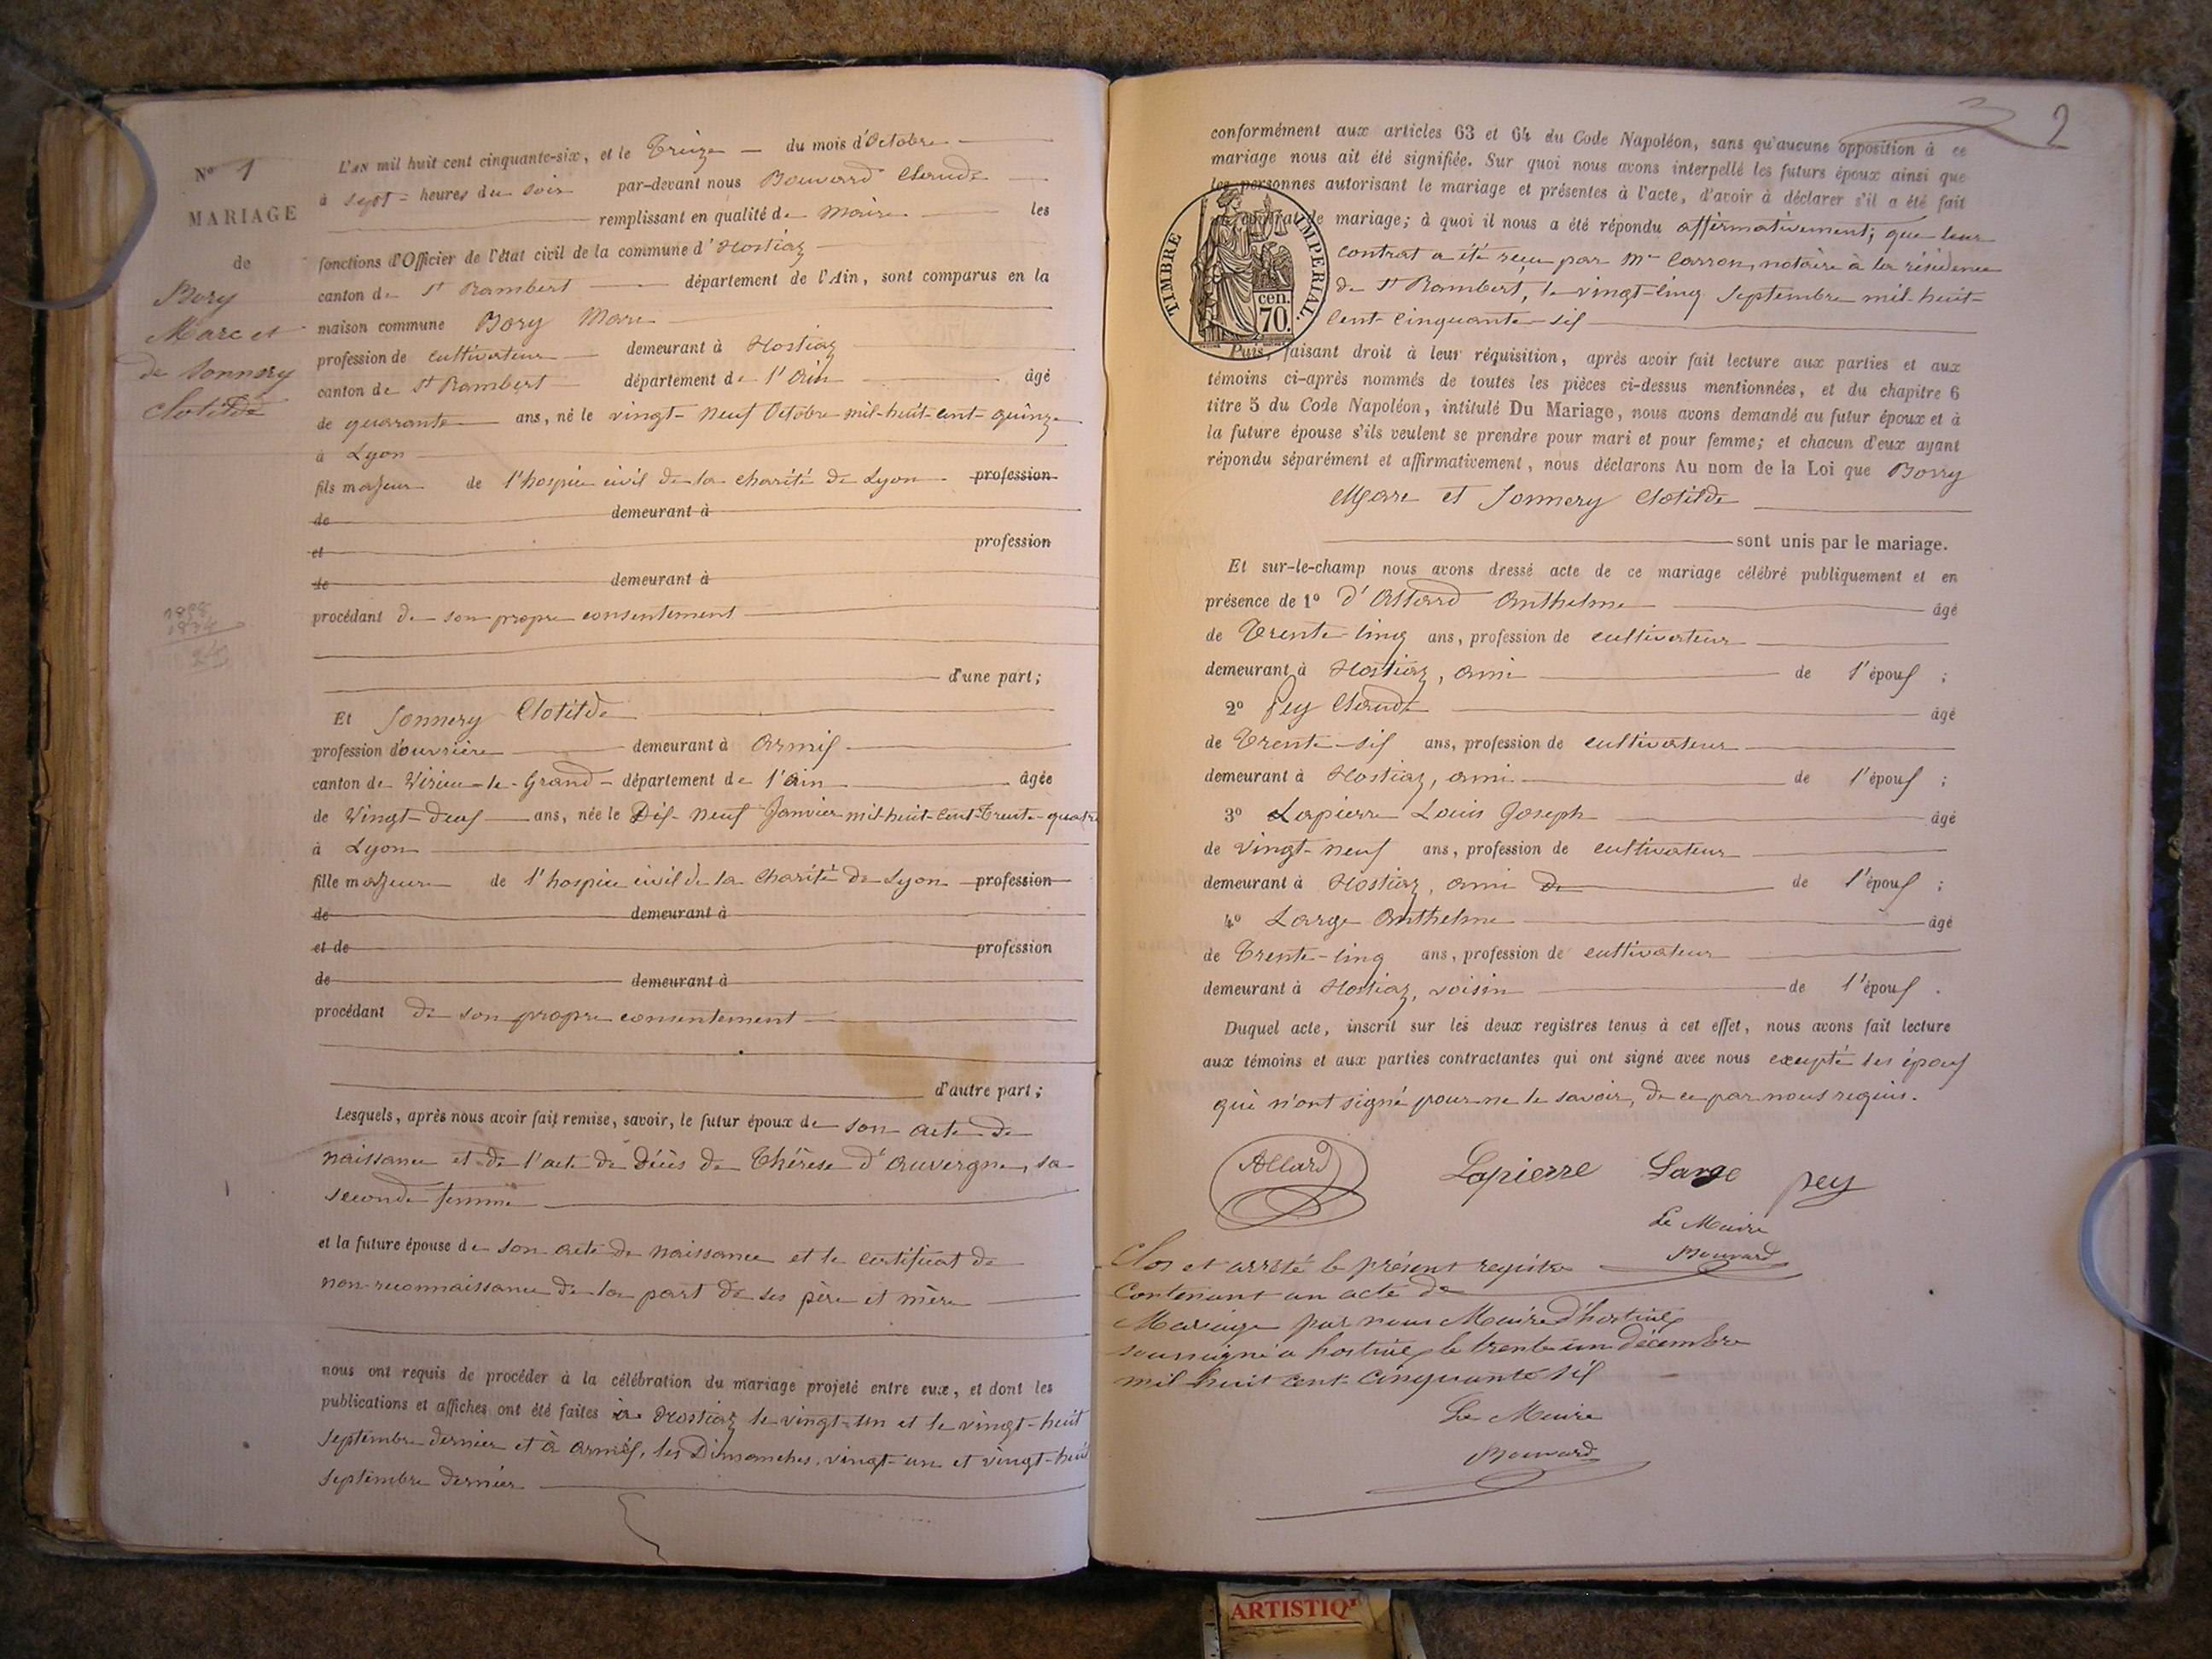 No 1
MARIAGE
de
Bory
Marc et
de Sonnery
Clotilde
L'AN mil huit cent cinquante-six, et le Treize du mois d'Octobre
à sept heures du soir par-devant nous Bouvard Claude
remplissant en qualité de Maire les
fonctions d'Officier de l'état civil de la commune d'Hostiaz
canton de St Rambert département de l'Ain, sont comparus en la
maison commune Bory Marc
profession de cultivateur demeurant à Hostiaz
canton de St Rambert département de l'Ain âgé
de quarante ans, né le vingt-neuf Octobre mil-huit-cent-quinze
à Lyon
fils majeur de l'hospice civil de la charité de Lyon profession
de demeurant à
et profession
de demeurant à
procédant de son propre consentement
d'une part;
Et Sonnery Clotilde
profession d'ouvrière demeurant à Armix
canton de Virieu-le-Grand département de l'Ain âgée
de Vingt-deux ans, née le Dix-neuf Janvier mil-huit-cent-Trente-quatre
à Lyon
fille majeure de l'hospice civil de la Charité de Lyon profession
de demeurant à
et de profession
de demeurant à
procédant de son propre consentement
d'autre part;
Lesquels, après nous avoir fait remise, savoir, le futur époux de son acte de
naissance et de l'acte de Décès de Thérèse d'Auvergne, sa
seconde femme
et la future épouse de son acte de naissance et le certificat de
non-reconnaissance de la part de ses père et mère
nous ont requis de procéder à la célébration du mariage projeté entre eux, et dont les
publications et affiches ont été faites à Hostiaz le vingt-un et le vingt-huit
septembre dernier et à Armix, les Dimanches vingt-un et vingt-huit
septembre dernier
2
conformément aux articles 63 et 64 du Code Napoléon, sans qu'aucune opposition à ce
mariage nous ait été signifiée. Sur quoi nous avons interpellé les futurs époux ainsi que
les personnes autorisant le mariage et présentes à l'acte, d'avoir à déclarer s'il a été fait
un contrat de mariage; à quoi il nous a été répondu affirmativement; que leur
contrat a été reçu par Me Carron, notaire à la résidence
de St Rambert, le vingt-cinq Septembre mil-huit-
cent-cinquante-six
TIMBRE IMPERIAL.
cen.
70.
Puis, faisant droit à leur réquisition, après avoir fait lecture aux parties et aux
témoins ci-après nommés de toutes les pièces ci-dessus mentionnées, et du chapitre 6
titre 5 du Code Napoléon, intitulé Du Mariage, nous avons demandé au futur époux et à
la future épouse s'ils veulent se prendre pour mari et pour femme; et chacun d'eux ayant
répondu séparément et affirmativement, nous déclarons Au nom de la Loi que Borry
Marc et Sonnery Clotilde
sont unis par le mariage.
Et sur-le-champ nous avons dressé acte de ce mariage célébré publiquement et en
présence de 1° d'Allard Anthelme âgé
de Trente-cinq ans, profession de cultivateur
demeurant à Hostiaz, ami de l'époux ;
2° Pey Claude âgé
de Trente-six ans, profession de cultivateur
demeurant à Hostiaz, ami de l'époux ;
3° Lapierre Louis Joseph âgé
de vingt-neuf ans, profession de cultivateur
demeurant à Hostiaz, ami de de l'époux ;
4° Large Anthelme âgé
de Trente-cinq ans, profession de cultivateur
demeurant à Hostiaz, voisin de l'époux .
Duquel acte, inscrit sur les deux registres tenus à cet effet, nous avons fait lecture
aux témoins et aux parties contractantes qui ont signé avec nous excepté les époux
qui n'ont signé pour ne le savoir, de ce par nous requis.
Allard Lapierre Large pey
Le Maire
Bouvard
Clos et arrêté le présent registre
Contenant un acte de
Mariage par nous Maire d'hostiaz
soussigné a hostiaz le trente un décembre
mil huit cent Cinquante six
Le Maire
Bouvard
ARTISTIQ